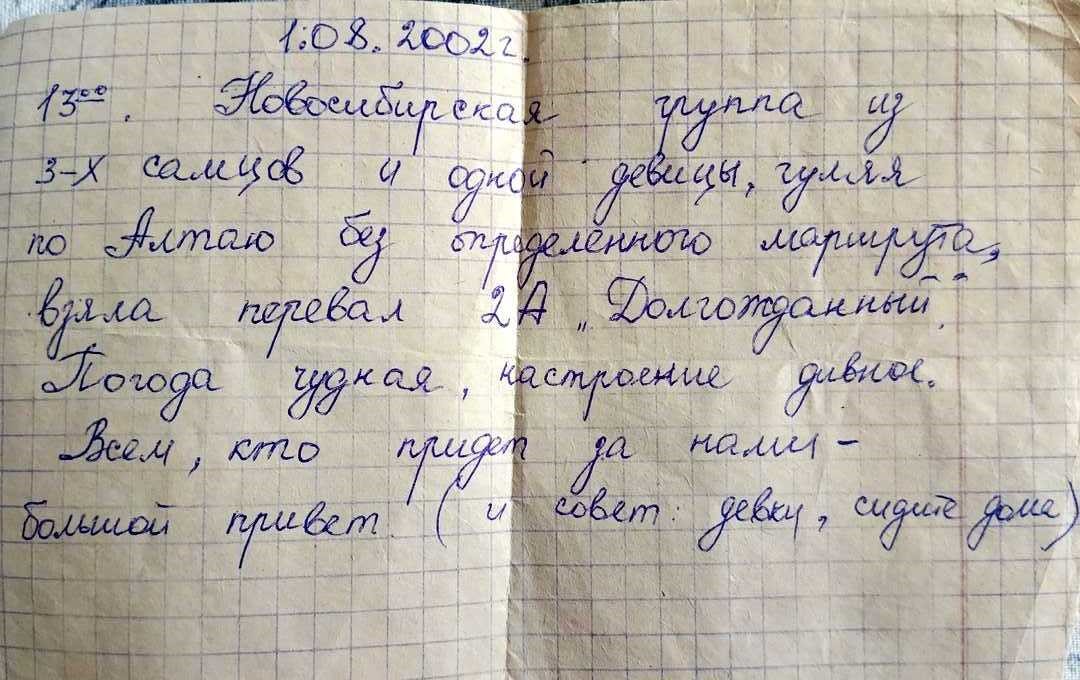 1.08.2002г.
13⁰⁰. Новосибирская группа из
3-х самцов и одной девицы, гуляя
по Алтаю без определенного маршрута,
взяла перевал 2А „Долгожданный".
Погода чудная, настроение дивное.
Всем, кто придет за нами -
большой привет (и совет: девки, сидите дома)